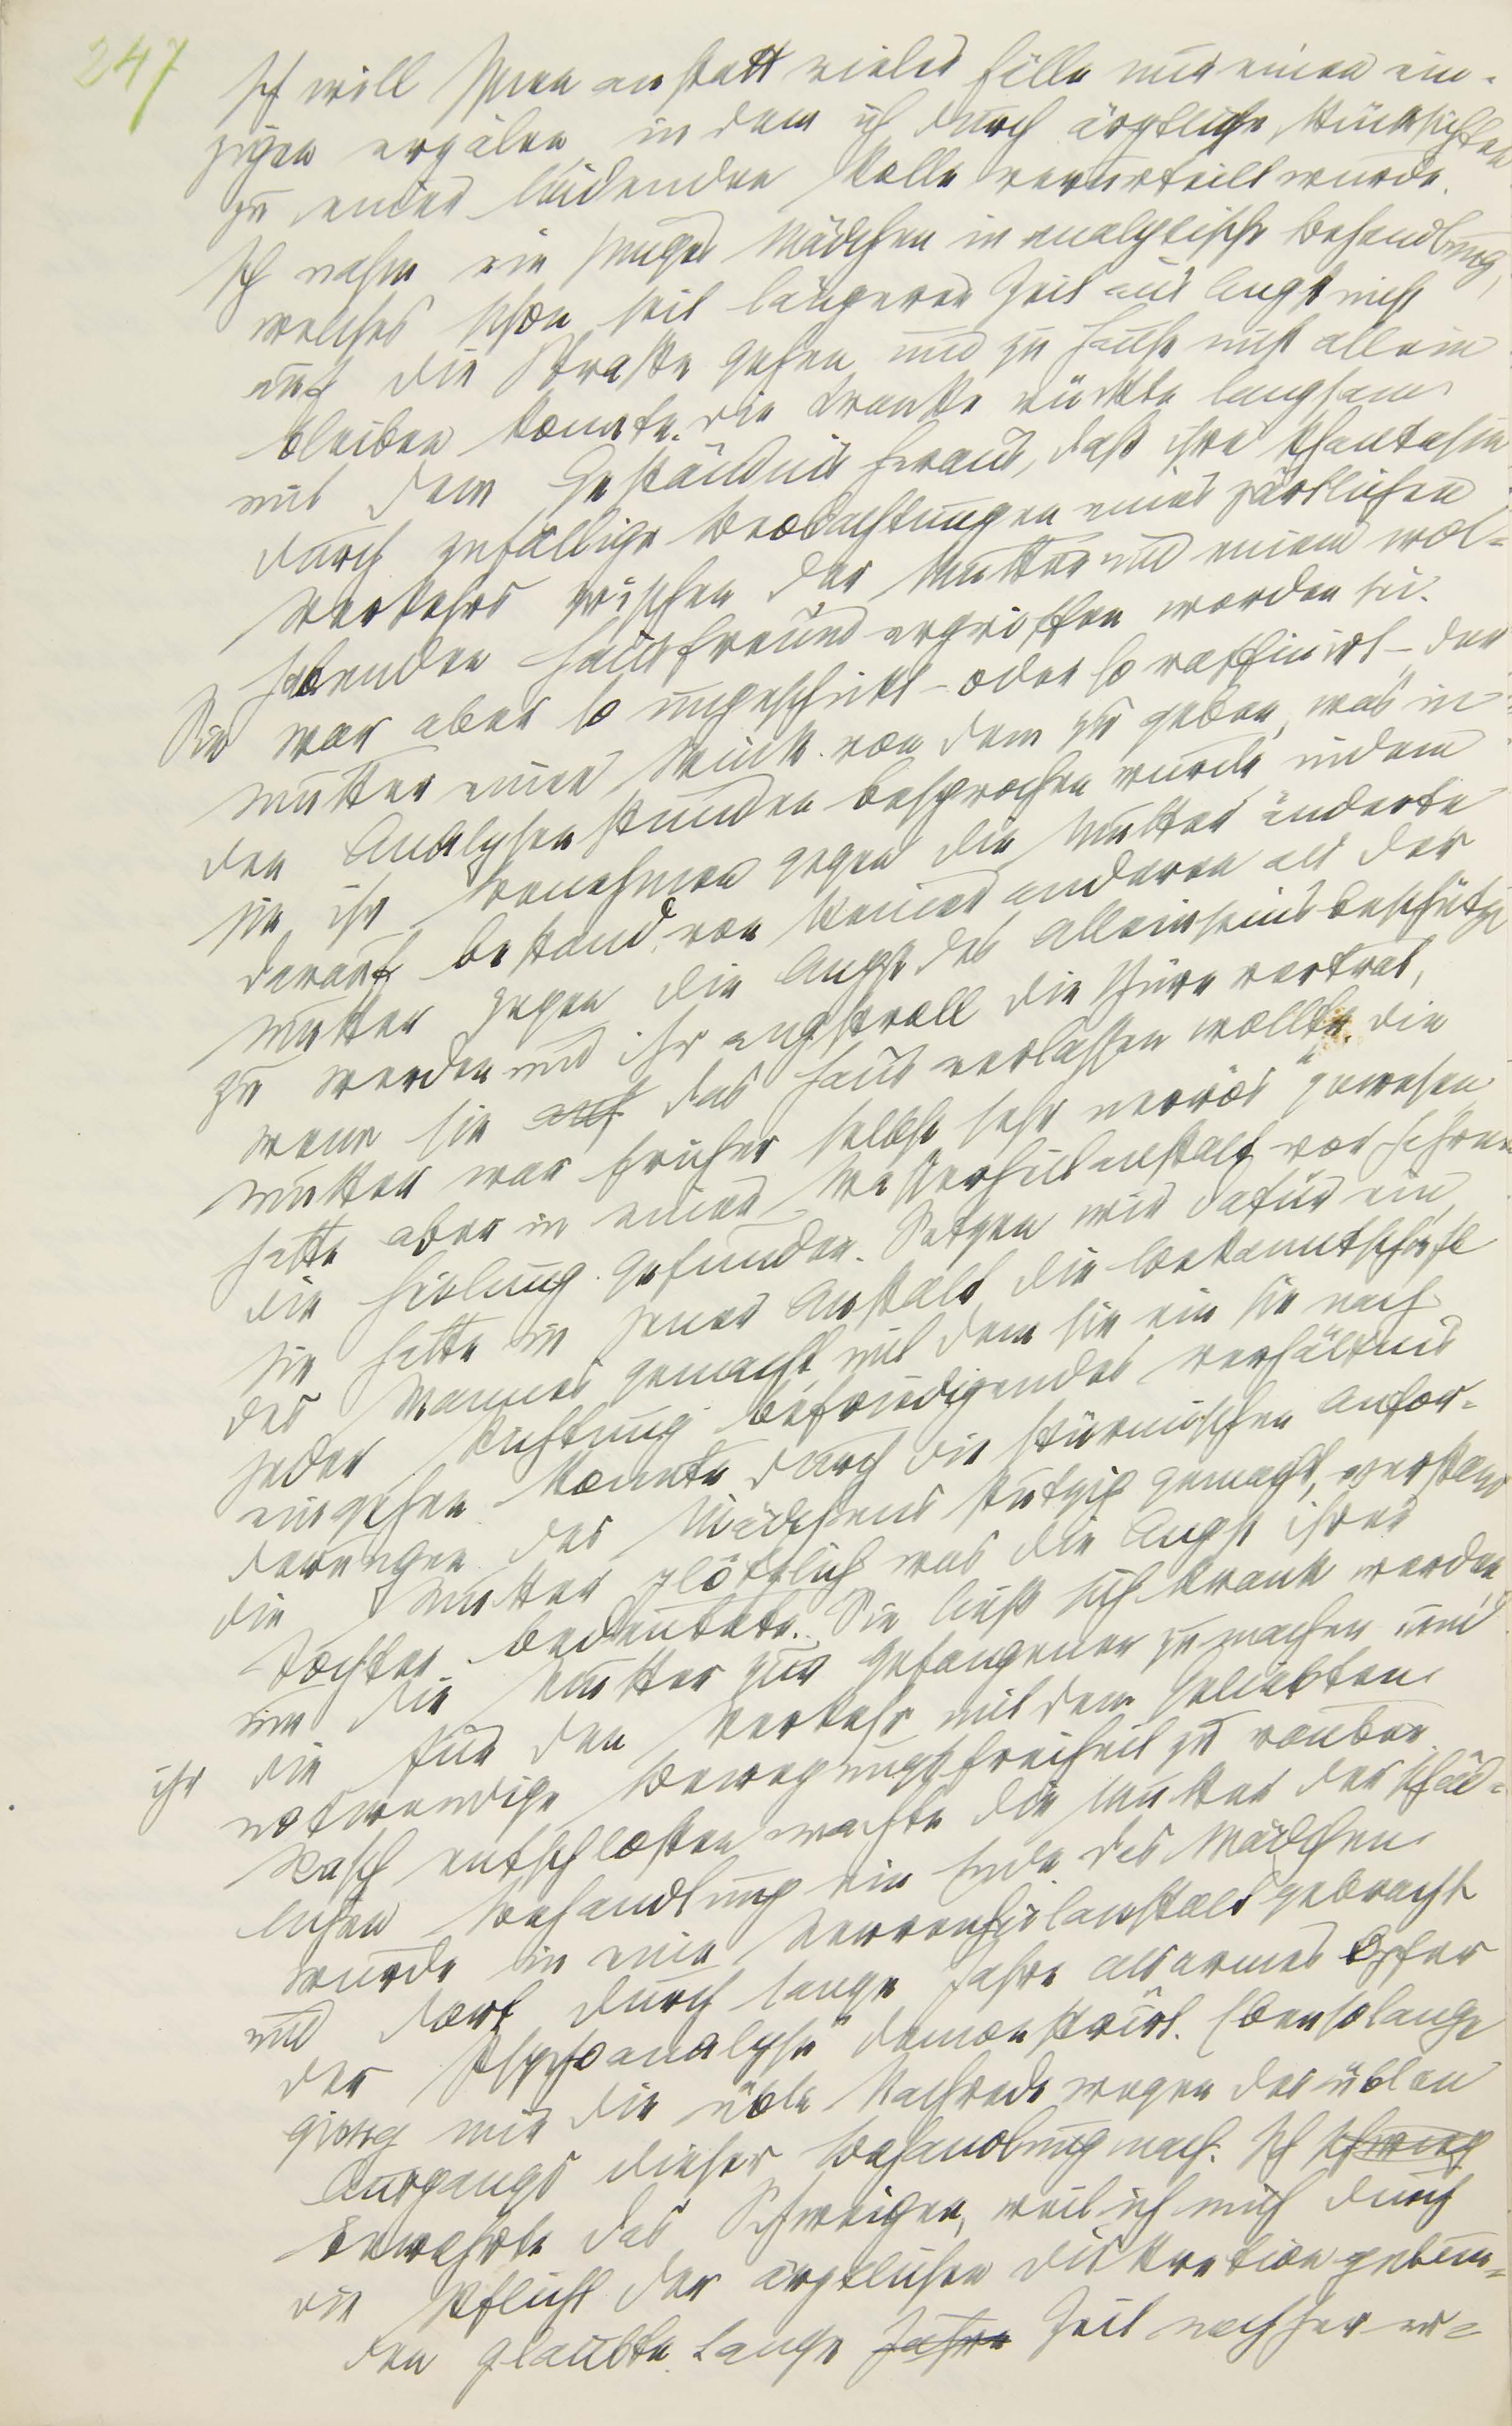 247
Ich will Ihnen anstatt vieler Fälle nur einen ein-
zigen erzälen, in dem ich durch ärztliche Rücksichten
zu einer leidenden Rolle verurteilt wurde.
Ich nahm ein junges Mädchen in analytische Behandlung,
welches schon seit längerer Zeit aus Angst nicht
auf die Straße gehen und zu Hause nicht allein
bleiben konnte. Die Kranke rückte langsam
mit dem Geständnis heraus, daß ihre Phantasie
durch zufällige Beobachtungen eines zärtlichen
Verkehrs zwischen der Mutter und einem wol-
habenden Hausfreund ergriffen worden sei.
Sie war aber so ungeschickt – oder so raffinirt – der
Mutter einen Wink von dem zu geben, was in
den Analysenstunden besprochen wurde, indem
sie ihr Benehmen gegen die Mutter änderte
darauf bestand, von keiner anderen als der
Mutter gegen die Angst des Alleinseins beschützt
zu werden und ihr angstvoll die Türe vertrat,
wenn sie auf das Haus verlassen wollte. Die
Mutter war früher selbst sehr nervös gewesen
hatte aber in einer Wasserheilanstalt vor Jahren
die Heilung gefunden. Setzen wir dafür ein,
sie hatte in jener Anstalt die Bekanntschaft
des Mannes gemacht, mit dem sie ein sie nach
jeder Richtung befriedigendes Verhältnis
eingehen konnte. Durch die stürmischen Anfor-
derungen des Mädchens stutzig gemacht, verstand
die Mutter plötzlich was die Angst ihrer
Tochter bedeutete. Sie ließ sich krank werden,
um die Mutter zur Gefangenen zu machen und
ihr die für den Verkehr mit dem Geliebten
notwendige Bewegungsfreiheit zu rauben.
Rasch entschlossen machte die Mutter der schäd-
lichen Behandlung ein Ende. Das Mädchen
wurde in eine Nervenheilanstalt gebracht
und dort durch lange Jahre als armes Opfer
der Psychoanalyse" demonstrirt. Ebensolange
gieng mir die üble Nachrede wegen des üblen
Ausgangs dieser Behandlung nach. Ich schwieg
bewahrte das Schweigen, weil ich mich durch
die Pflicht der ärztlichen Diskretion gebun-
den glaubte. Lange Jahre Zeit nachher er-